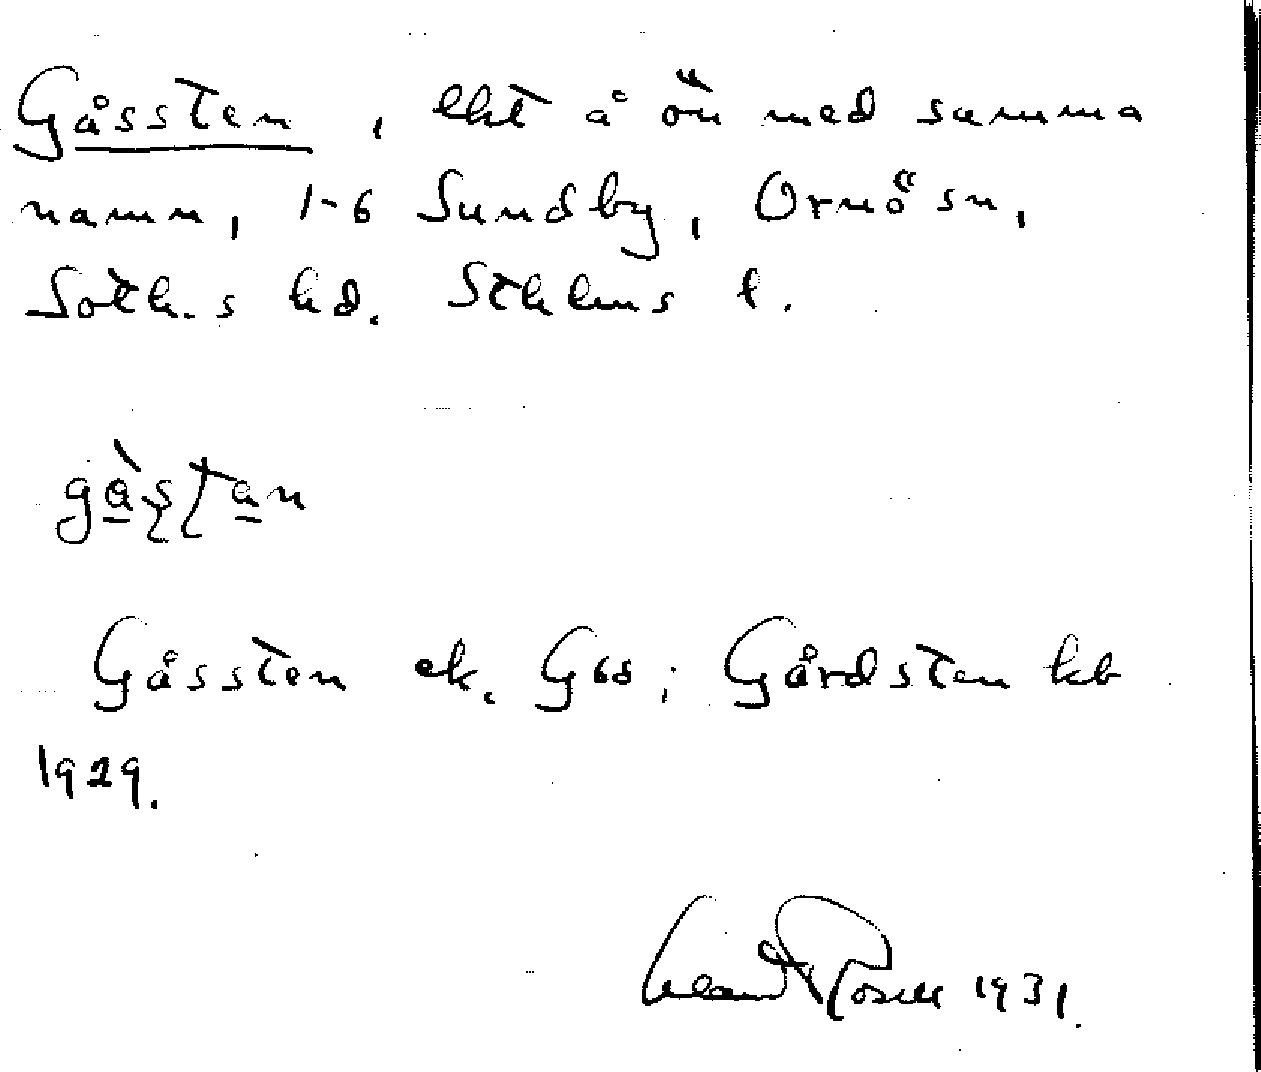 Gåssten, lht å ön med samma
namn, 1-6 Sundby, Ornö sn,
Soth.s hd. Sthlms l.
gå̀stan
Gåssten ek. G68; Gårdsten kb
1929.
1931.